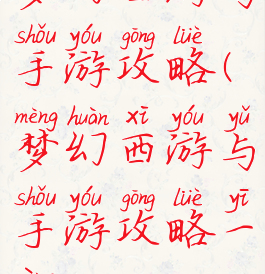 shǒu yóu gōng lüè
手游攻略(
mèng huàn xī yóu yǔ
梦幻西游与
shǒu yóu gōng lüè yī
手游攻略一